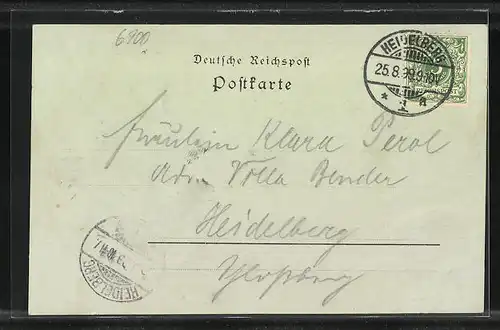 6900
Deutsche Reichspost
Postkarte
HEIDELBERG
25.8.99.9-10V
* 1 a
Fräulein Klara Perol
Adr. Villa Bender
Heidelberg
HEIDELBERG